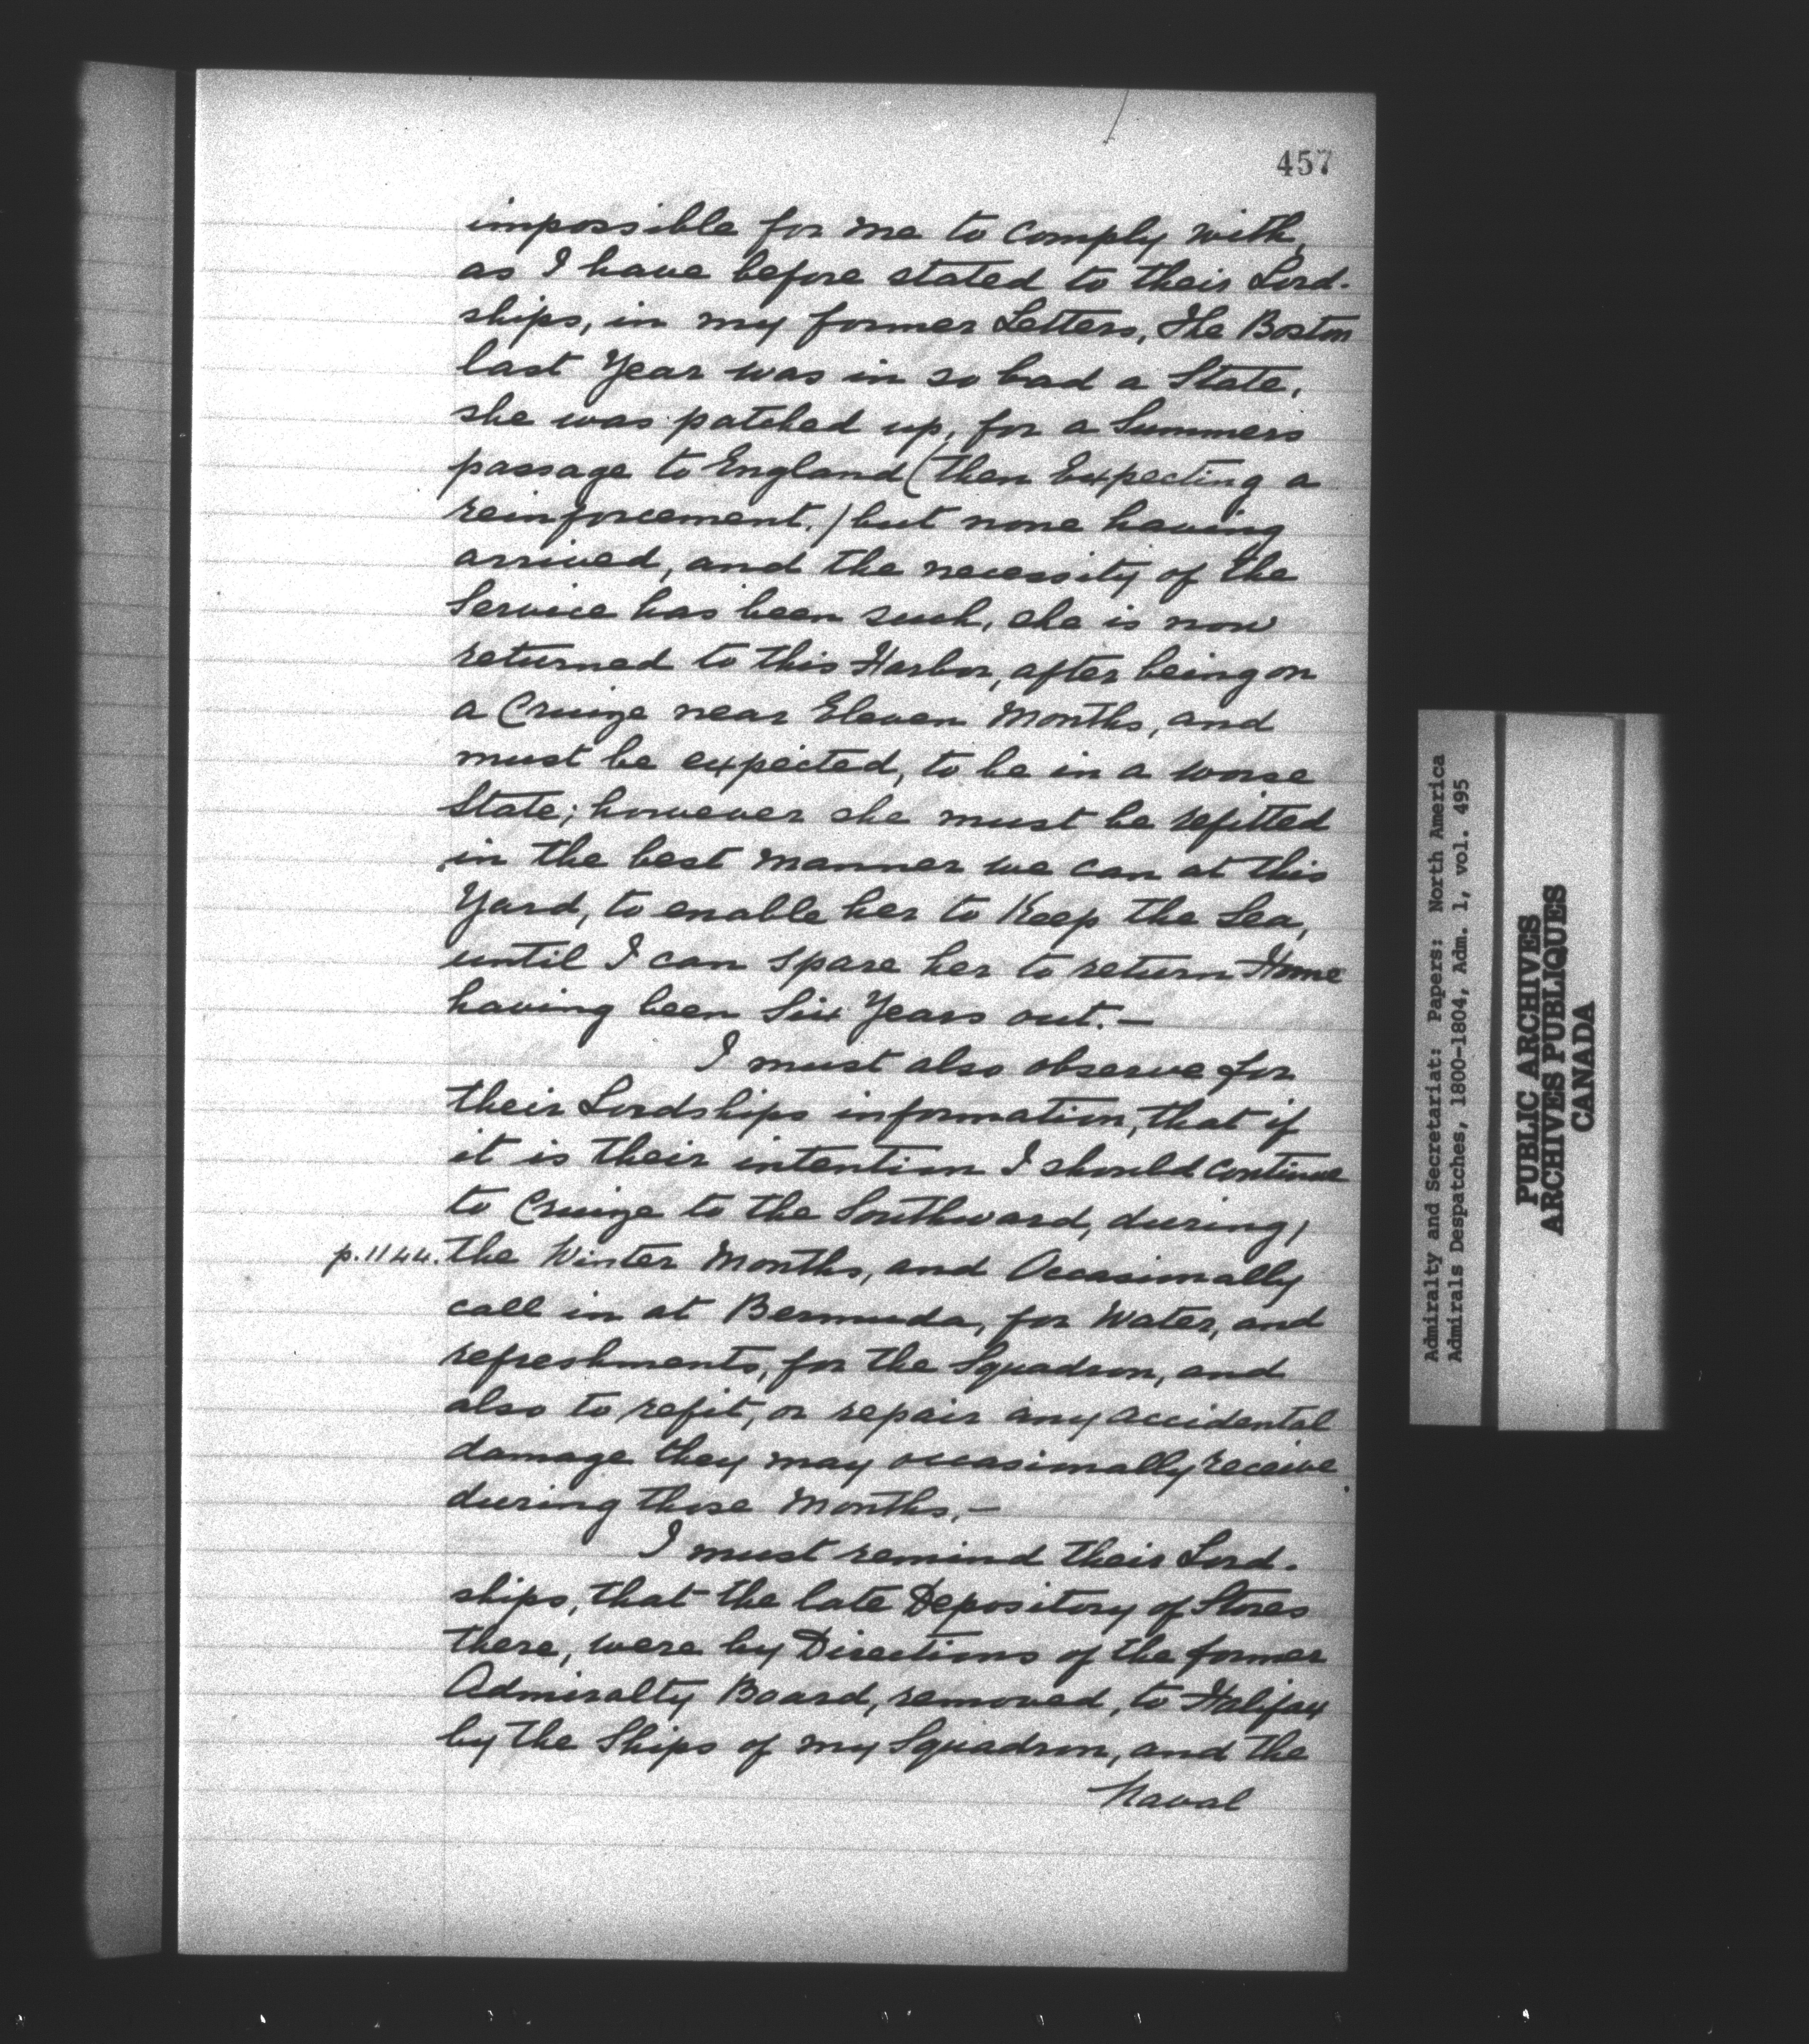 457
impossible for me to comply with,
as I have before stated to their Lord-
ships, in my former Letters, The Boston
last Year was in so bad a State,
she was patched up, for a Summers
passage to England (then Expecting a
reinforcement.) but none having
arrived, and the necessity of the
Service has been such, she is now
returned to this Harbor, after being on
a Cruize near Eleven Months, and
must be expected, to be in a worse
State; however she must be refitted
in the best Manner we can at this
Yard, to enable her to Keep the Sea,
until I can spare her to return Home
having been Six Years out.—
I must also observe for
their Lordships information, that if
it is their intention I should continue
to Cruize to the Southward, during,
p. 1144. the Winter Months, and Occasionally
call in at Bermuda, for Water, and
refreshments, for the Squadron, and
also to refit, or repair any accidental
damage they may occasionally receive
during those Months.—
I must remind their Lord-
ships, that the late Depository of Stores
there, were by Directions of the former
Admiralty Board, removed, to Halifax
by the Ships of my Squadron, and the
Naval
Admiralty and Secretariat: Papers: North America
Admirals Despatches, 1800-1804, Adm. 1, vol. 495
PUBLIC ARCHIVES
ARCHIVES PUBLIQUES
CANADA